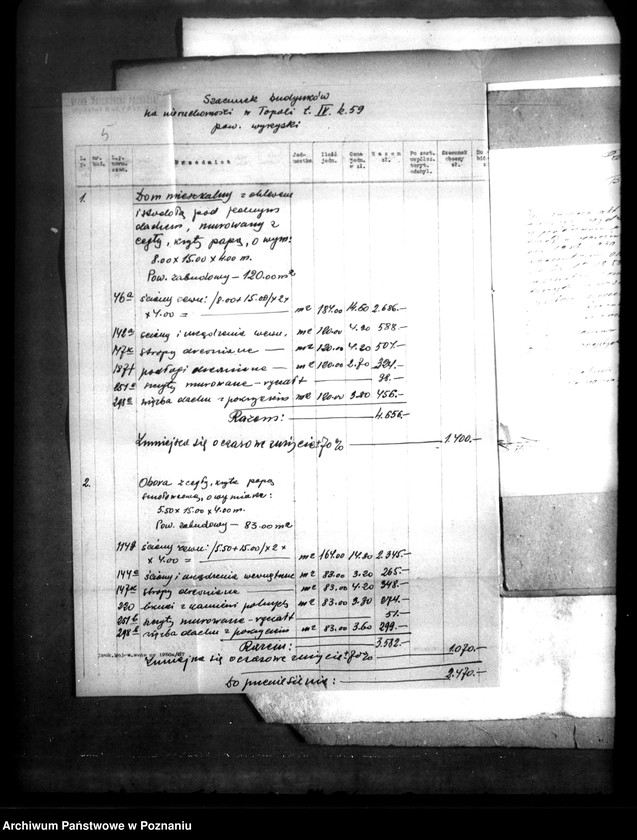 Szacunek budynków
na nieruchomości w Topoli t. IV k. 59
pow. wyrzyski
5
L. p. nr. bud. L.p. norm. szac. Przedmiot Jednostka Ilość jedn. Cena jedn. w zł. Razem zł. Po zast. współcz. teryt. odchyl. Szacunek obecny zł.
1. Dom mieszkalny z chlewem
i stodołą pod jednym
dachem, murowany z
cegły, kryty papą, o wym:
8.00 x 15.00 x 4.00 m.
Pow. zabudowy – 120.00 m²
46a ściany zewn: /8.00 + 15.00/ x 2 x
x 4.00 = m² 184.00 14.60 2.686.–
142a ściany i urządzenia wewn. m² 120.00 4.90 588.–
147x stropy drewniane — m² 120.00 4.20 504.–
187f podłogi drewniane — m² 120.00 2.70 324.–
251a kryty murowane - ryczałt 98.–
298a więźba dachu z pokryciem m² 120.00 3.80 456.–
Razem: 4.656.–
Zmniejsza się o czasowe zużycie: 70% 1.400.–
2. Obora z cegły, kryta papą
smołowcową, o wymiarze:
5.50 x 15.00 x 4.00 m.
Pow. zabudowy – 83.00 m²
ściany zewn: /5.50 + 15.00/ x 2 x
x 4.00 = m² 164.00 14.30 2.345.–
144a ściany i urządzenia wewnętrzne m² 83.00 3.20 265.–
147x stropy drewniane m² 83.00 4.20 348.–
220 bruki z kamieni polnych m² 83.00 3.30 274.–
251b kryty murowane - ryczałt 51.–
298a więźba dachu z pokryciem m² 83.00 3.60 299.–
Razem: 3.582.–
Zmniejsza się o czasowe zużycie: 70% 1.070.–
Do przeniesienia: 2.470.–
Archiwum Państwowe w Poznaniu